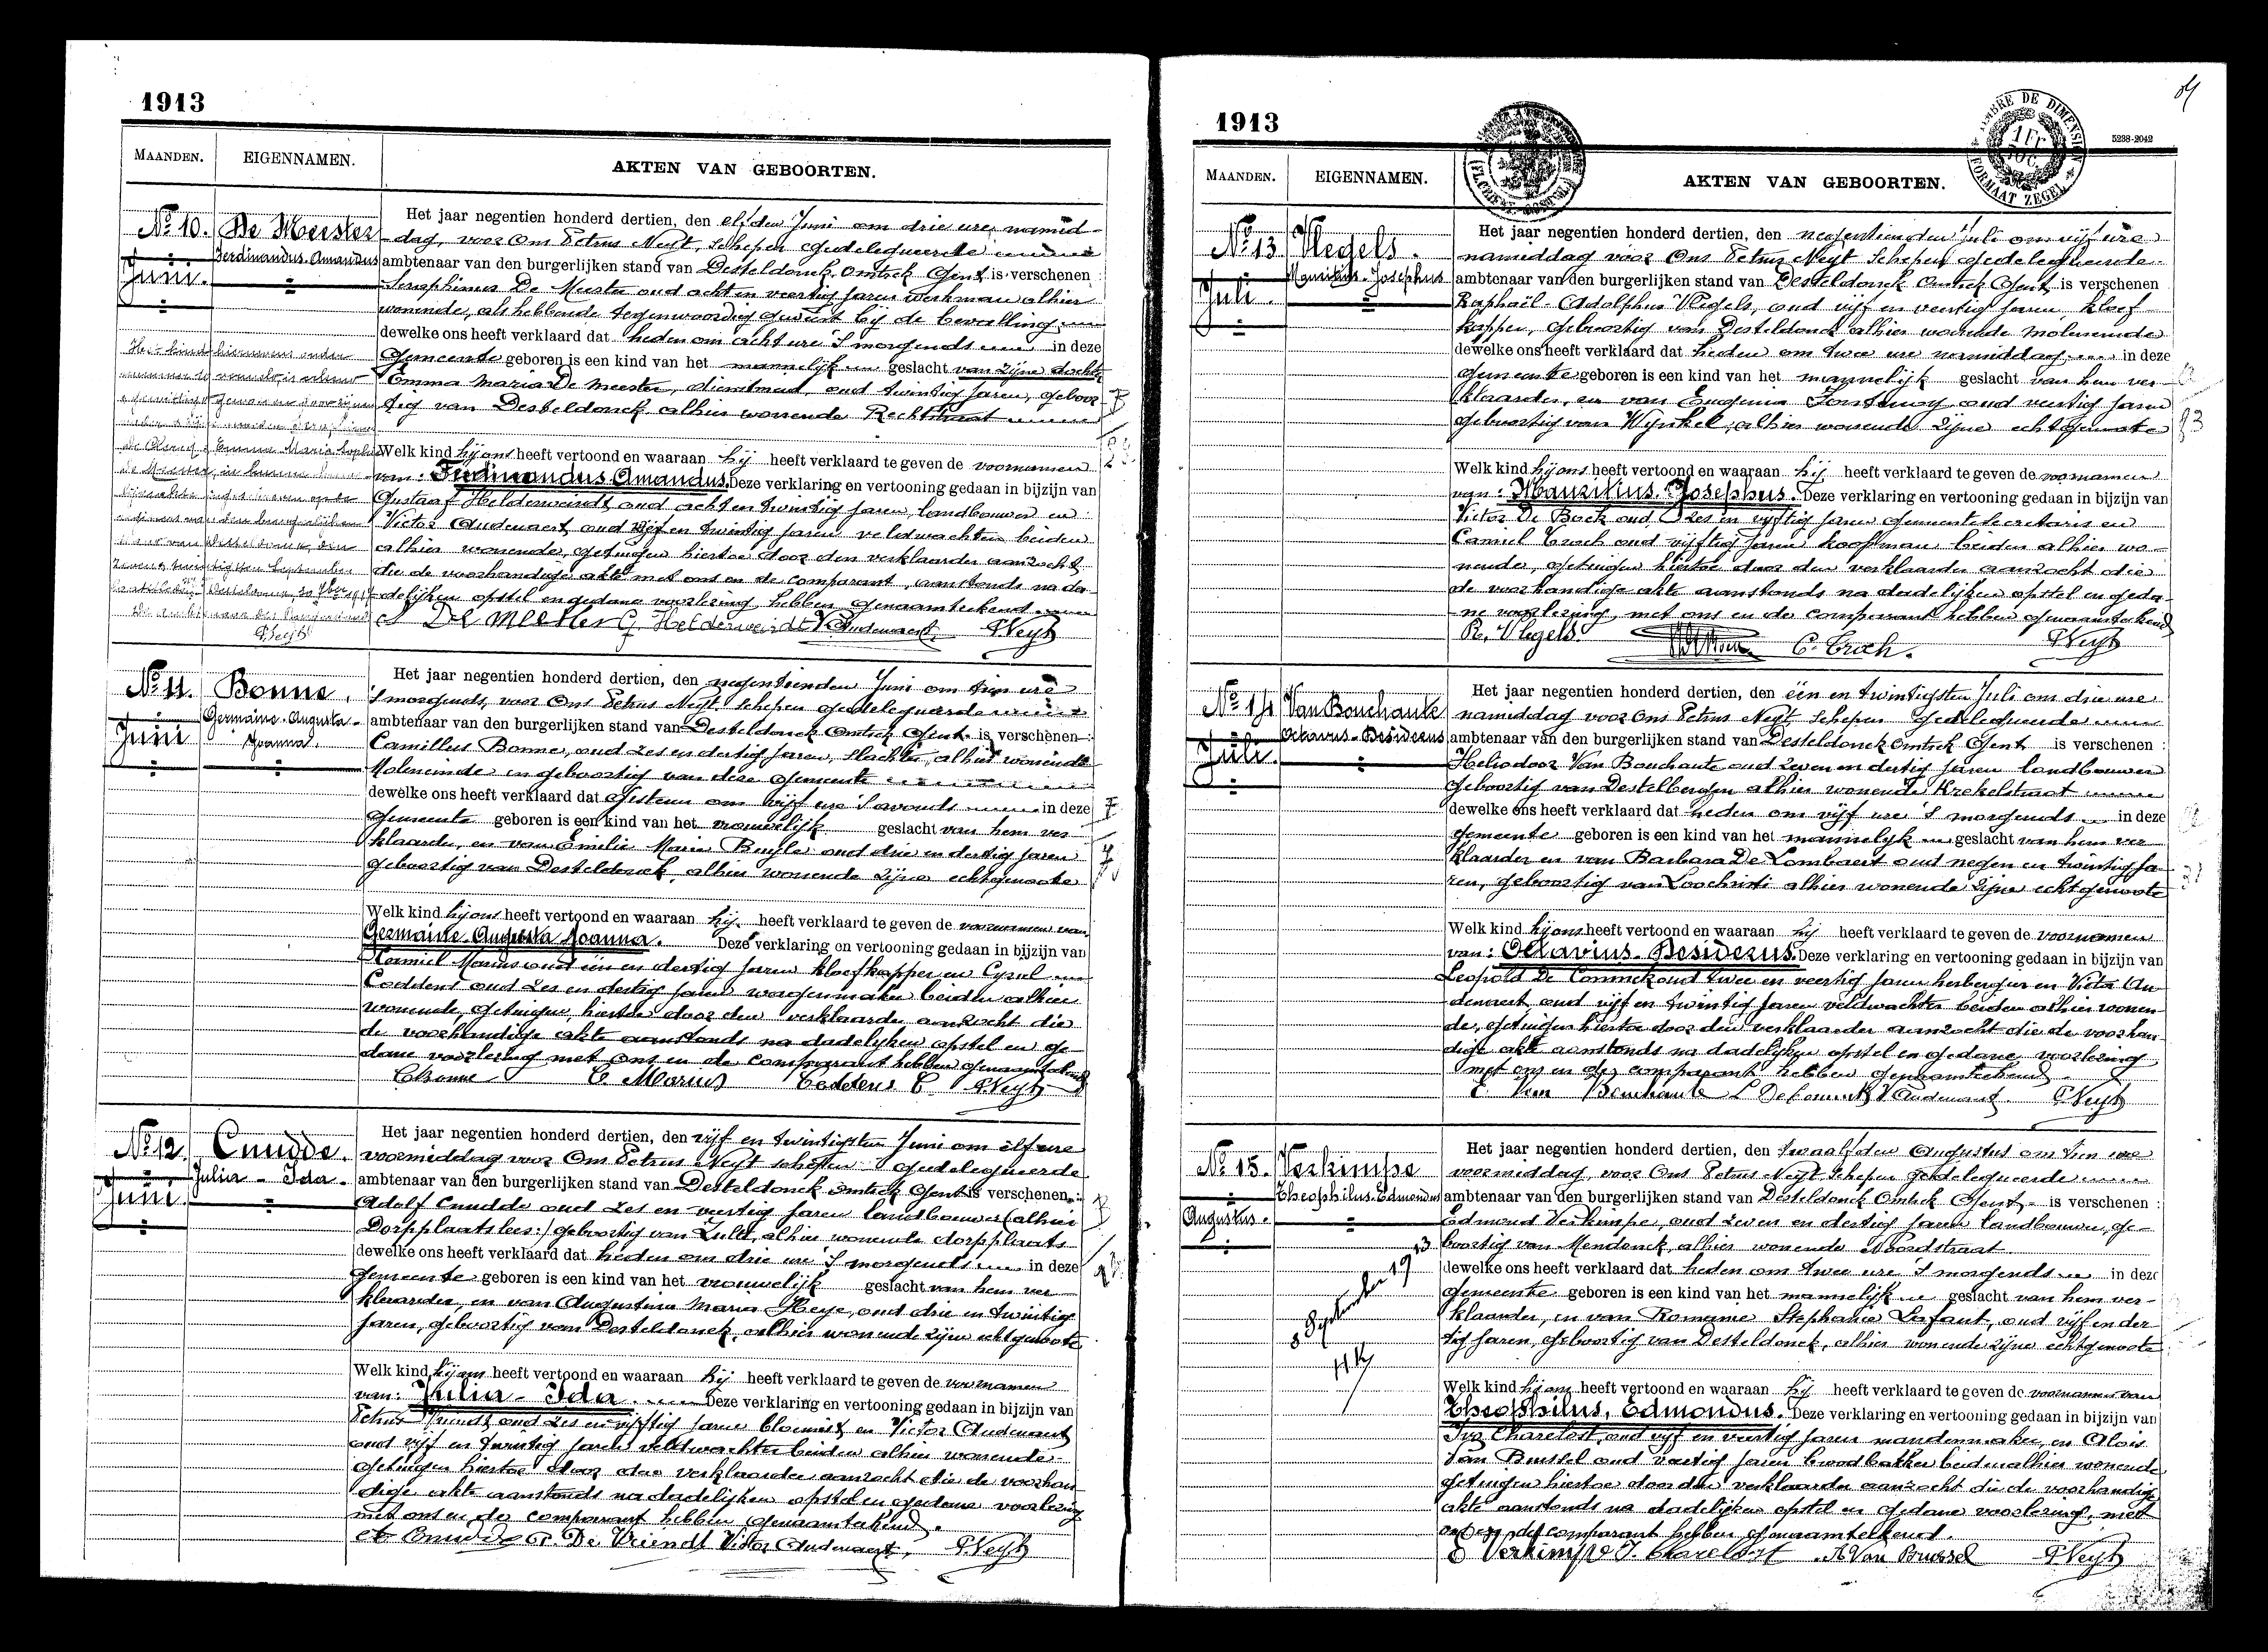 1913
MAANDEN. EIGENNAMEN. AKTEN VAN GEBOORTEN.
No 10. De Meester
Ferdinandus-Amandus
Juni.
Het jaar negentien honderd dertien, den elfden Juni om drie ure namid-
dag, voor Ons Petrus Neyt, schepen gedelegueerde
ambtenaar van den burgerlijken stand van Desteldonck Omtrek Gent is verschenen :
Seraphinus De Meester oud acht en veertig jaren werkman alhier
wonende, als hebbende tegenwoordig geweest bij de bevalling
dewelke ons heeft verklaard dat heden om acht ure 's morgends in deze
Gemeente geboren is een kind van het mannelijk geslacht van zijne dochter
Emma Maria De Meester, dienstmeid, oud twintig jaren, geboor-
tig van Desteldonck alhier wonende Rechtstraat
Welk kind hij ons heeft vertoond en waaraan hij heeft verklaard te geven de voornamen
van: Ferdinandus Amandus. Deze verklaring en vertooning gedaan in bijzijn van
Gustaaf Helderweirdt oud acht en twintig jaren, landbouwer en
Victor Audenaert oud vijf en twintig jaren veldwachter beiden
alhier wonende, getuigen hiertoe door den verklaarder aanzocht
die de voorhandige akte met ons en de comparant, aanstonds na da-
delijken opstel en gedane voorlezing hebben genaamteekend
S De Meester G. Helderweirdt V Audenaert PNeyt
Het kind hiernevens onder
PNeyt
No 11. Bonne.
Germaine-Augusta-
Joanna.
Juni
Het jaar negentien honderd dertien, den negentienden Juni om tien ure
's morgends, voor Ons Petrus Neyt, schepen gedelegueerde
ambtenaar van den burgerlijken stand van Desteldonck Omtrek Gent is verschenen :
Camillus Bonne, oud zes en dertig jaren, slachter, alhier wonende
Moleneinde en geboortig van deze Gemeente
dewelke ons heeft verklaard dat gisteren om vijf ure 's avonds in deze
Gemeente geboren is een kind van het vrouwelijk geslacht van hem ver-
klaarder, en van Emilie Marie Buysse oud drie en dertig jaren
geboortig van Desteldonck, alhier wonende zijne echtgenoote
Welk kind hij ons heeft vertoond en waaraan hij heeft verklaard te geven de voornamen van
Germaine-Augusta Joanna. Deze verklaring en vertooning gedaan in bijzijn van
Kamiel Marius oud een en dertig jaren kloefkapper en Cyriel
Coddens oud zes en dertig jaren wagenmaker beiden alhier
wonende, getuigen, hiertoe door den verklaarder aanzocht die
de voorhandige akte aanstonds na dadelijken opstel en ge-
dane voorlezing met ons en de comparant hebben genaamteekend
CBonne C. Marius Coddens C PNeyt
No 12. Cnudde.
Julia - Ida.
Juni
Het jaar negentien honderd dertien, den vijf en twintigsten Juni om elf ure
voormiddag voor Ons Petrus Neyt schepen gedelegueerde
ambtenaar van den burgerlijken stand van Desteldonck Omtrek Gent is verschenen :
Adolf Cnudde oud zes en veertig jaren landbouwer (alhier
Dorpplaats lees:) geboortig van Zulte, alhier wonende dorpplaats
dewelke ons heeft verklaard dat heden om drie ure 's morgends in deze
Gemeente geboren is een kind van het vrouwelijk geslacht van hem ver
klaarder, en van Augustina Maria Heye, oud drie en twintig
jaren, geboortig van Desteldonck, alhier wonende zijne echtgenoote
Welk kind hij ons heeft vertoond en waaraan hij heeft verklaard te geven de voornamen
van: Julia - Ida Deze verklaring en vertooning gedaan in bijzijn van
Petrus Vriendt oud zes en vijftig jaren bloemist en Victor Audenaert
oud vijf en twintig jaren veldwachter beiden alhier wonende
getuigen hiertoe door den verklaarder aanzocht die de voorhan
dige akte aanstonds na dadelijken opstel en gedane voorlezing
met ons en de comparant hebben genaamteekend.
A Cnudde P. De Vriendt Victor Audenaert, PNeyt
1913
5238-2042
TIMBRE DE DIMENSION
1 Fr.
FORMAAT ZEGEL
MAANDEN. EIGENNAMEN. AKTEN VAN GEBOORTEN.
No 13 Vlegels.
Mauritius-Josephus
Juli.
Het jaar negentien honderd dertien, den negentienden Juli om vijf ure
namiddag voor Ons Petrus Neyt Schepen gedelegueerde
ambtenaar van den burgerlijken stand van Desteldonck Omtrek Gent is verschenen
Raphaël-Adolphus Vlegels, oud vijf en veertig jaren, kloef-
kapper, geboortig van Desteldonck alhier wonende Moleneinde
dewelke ons heeft verklaard dat heden om twee ure namiddag in deze
gemeente geboren is een kind van het mannelijk geslacht van hem ver-
klaarder, en van Eugenia oud veertig jaren
geboortig van Wynkel, alhier wonende zijne echtgenoote
Welk kind hij ons heeft vertoond en waaraan hij heeft verklaard te geven de voornamen
van: Mauritius-Josephus. Deze verklaring en vertooning gedaan in bijzijn van
Victor De Bock oud zes en vijftig jaren gemeentesecretaris en
Camiel Croch oud vijftig jaren koopman beiden alhier wo-
nende, getuigen hiertoe door den verklaarder aanzocht die
de voorhandige akte aanstonds na dadelijken opstel en geda-
ne voorlezing, met ons en de comparant hebben genaamteekend
R. Vlegels. C. Croch. PNeyt
No 14 Van Bouchaute
Octavius-Desiderus
Juli.
Het jaar negentien honderd dertien, den één en twintigsten Juli om drie ure
namiddag voor Ons Petrus Neyt schepen gedelegueerde
ambtenaar van den burgerlijken stand van Desteldonck Omtrek Gent is verschenen :
Heliodoor Van Bouchaute oud zeven en dertig jaren landbouwer
geboortig van Destelbergen alhier wonende Krekelstraat
dewelke ons heeft verklaard dat heden om vijf ure 's morgends in deze
gemeente geboren is een kind van het mannelyk geslacht van hem ver
klaarder en van Barbara De Lombaert oud negen en twintig ja-
ren, geboortig van Loochristi alhier wonende zijne echtgenoote
Welk kind hij ons heeft vertoond en waaraan hij heeft verklaard te geven de voornamen
van: Octavius-Desiderus. Deze verklaring en vertooning gedaan in bijzijn van
Leopold De Coninck oud twee en veertig jaren herbergier en Victor Au-
denaert, oud vijf en twintig jaren veldwachter beiden alhier wonen-
de, getuigen hiertoe door den verklaarder aanzocht die de voorhan-
dige akte aanstonds na dadelijken opstel en gedane voorlezing
met ons en de comparant hebben genaamteekend.
Van Bouchaute L De Coninck V Audenaert. PNeyt
No 15. Verkimpe
Theophilus-Edmondus
Augustus.
Het jaar negentien honderd dertien, den twaalfden Augustus om tien ure
voormiddag, voor Ons Petrus Neyt, schepen gedelegueerde
ambtenaar van den burgerlijken stand van Desteldonck Omtrek Gent is verschenen :
Edmond Verkimpe, oud zeven en dertig jaren landbouwer, ge-
boortig van Mendonck, alhier wonende Noordstraat
dewelke ons heeft verklaard dat heden om twee ure 's morgends in deze
gemeente geboren is een kind van het mannelijk geslacht van hem ver-
klaarder, en van Romanie Stephanie Lafaut, oud vijf en der-
tig jaren, geboortig van Desteldonck, alhier wonende zijne echtgenoote
Welk kind hij ons heeft vertoond en waaraan hij heeft verklaard te geven de voornamen van
Theophilus, Edmondus. Deze verklaring en vertooning gedaan in bijzijn van
Ivo Charelost, oud vijf en veertig jaren mandenmaker, en Alois
Van Brussel oud veertig jaren broodbakker beiden alhier wonende
getuigen hiertoe door den verklaarder aanzocht die de voorhandige
akte aanstonds na dadelijken opstel en gedane voorlezing, met
ons en de comparant hebben genaamteekend.
E Verkimpe I. Charelost A Van Brussel PNeyt